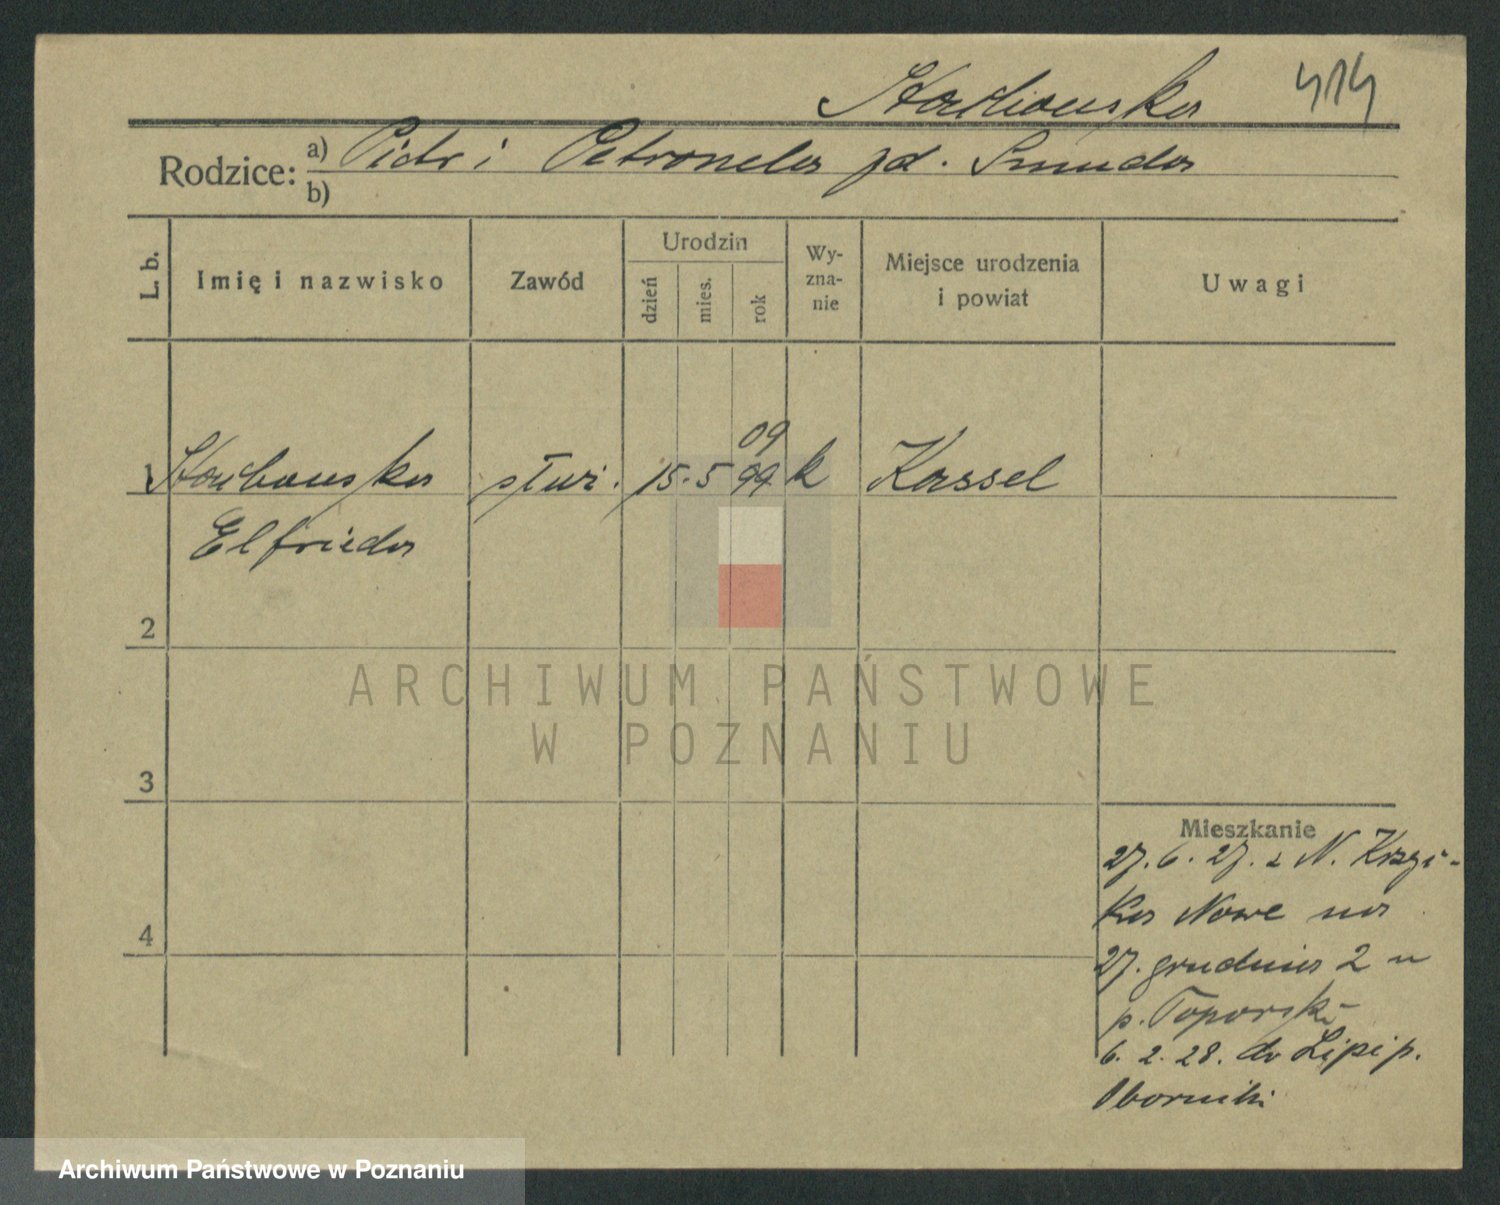 Stachowska 414
Rodzice: a) Piotr i Petronela zd. Smuda
b)
L. b. Imię i nazwisko Zawód Urodzin dzień mies. rok Wy-zna-nie Miejsce urodzenia i powiat Uwagi
09
1 Stachowska służ. 15. 5 99 k Kassel
Elfrieda
2
ARCHIWUM PAŃSTWOWE
W POZNANIU
3
Mieszkanie
27. 6. 27. z N. Krzy-
ka Nowe na
4
27. grudnia 2 u
p. Toporski
6. 2. 28. do Lipi p.
Oborniki
Archiwum Państwowe w Poznaniu